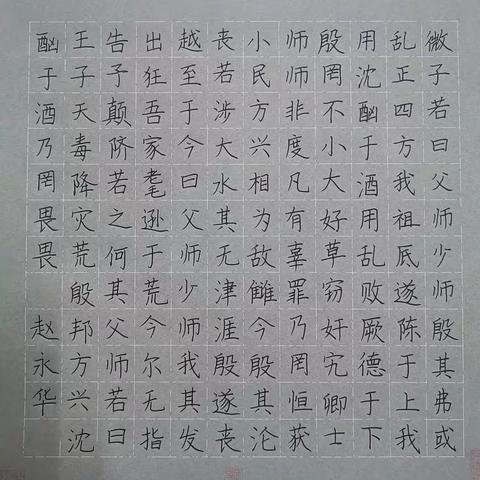 微子若曰父师少师殷其弗或
乱正四方我祖厎遂陈于上我
用沈酗于酒用乱败厥德于下
殷罔不小大好草窃奸宄卿士
师师非度凡有辜罪乃罔恒获
小民方兴相为敌雠今殷其沦
丧若涉大水其无津涯殷遂丧
越至于今曰父师少师我其发
出狂吾家耄逊于荒今尔无指
告予颠𬯀若之何其父师若曰
王子天毒降灾荒殷邦方兴沈
酗于酒乃罔畏畏 赵永华